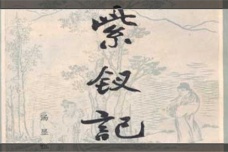 紫釵記